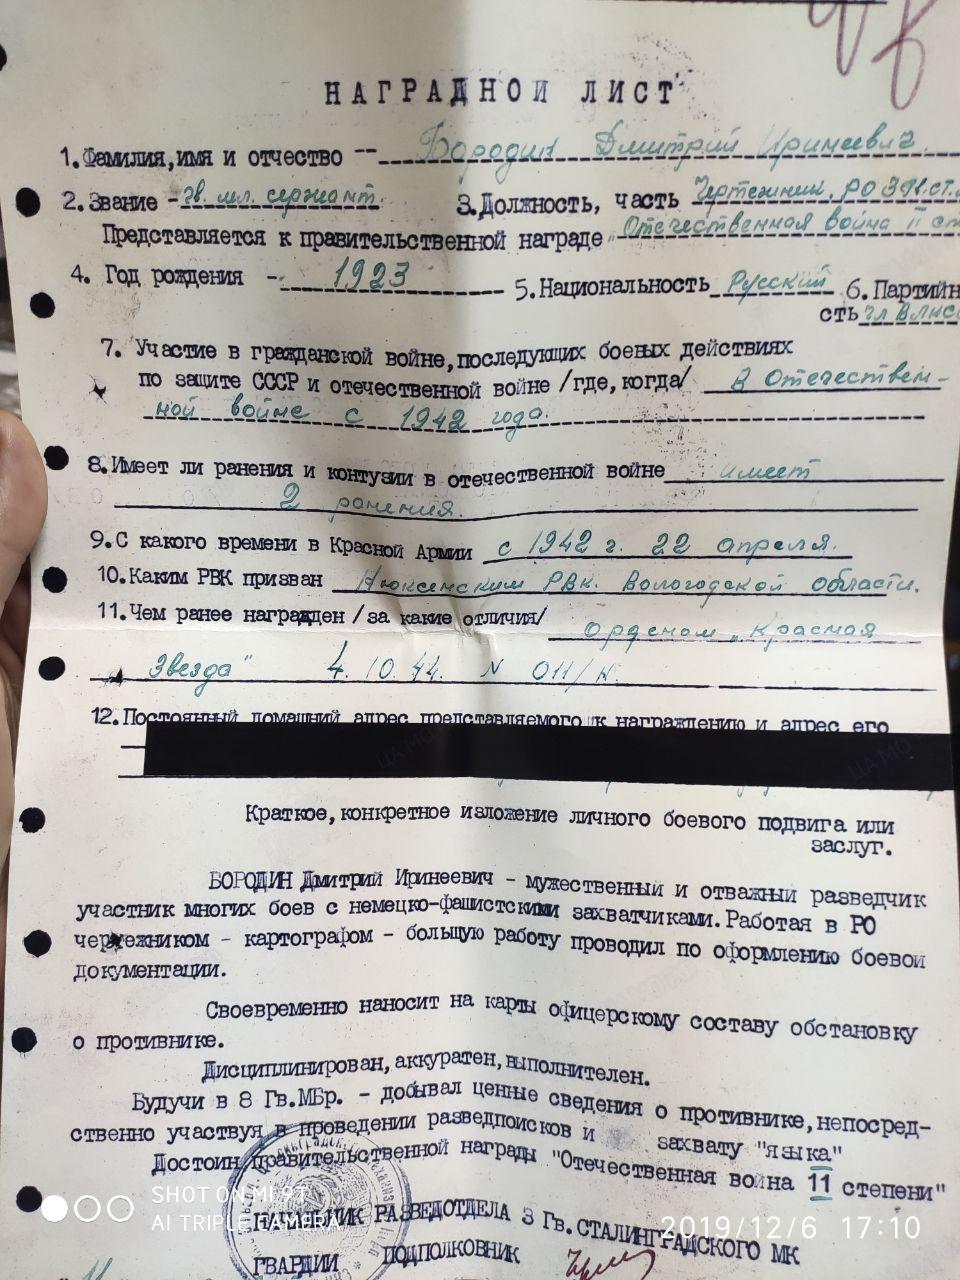 НАГРАДНОЙ ЛИСТ
1. Фамилия, имя и отчество -- Бородин Дмитрий Иринеевич
2. Звание - гв. мл. сержант. 3. Должность, часть Чертежник, РО 3 гв. ст.
Представляется к правительственной награде „Отечественная война II ст
4. Год рождения - 1923 5. Национальность Русский 6. Партийн
сть чл ВЛКС
7. Участие в гражданской войне, последующих боевых действиях
по защите СССР и отечественной войне /где, когда/ В Отечествен-
ной войне с 1942 года.
8. Имеет ли ранения и контузии в отечественной войне имеет
2 ранения.
9. С какого времени в Красной Армии с 1942 г. 22 апреля.
10. Каким РВК призван Нюксенским РВК. Вологодской области.
11. Чем ранее награжден /за какие отличия/ орденом „Красная
Звезда" 4.10.44. N 011/н.
12. Постоянный домашний адрес представляемого к награждению и адрес его
Краткое, конкретное изложение личного боевого подвига или
заслуг.
БОРОДИН Дмитрий Иринеевич - мужественный и отважный разведчик
участник многих боев с немецко-фашистскими захватчиками. Работая в РО
чертежником - картографом - большую работу проводил по оформлению боевой
документации.
Своевременно наносит на карты офицерскому составу обстановку
о противнике.
Дисциплинирован, аккуратен, выполнителен.
Будучи в 8 Гв.МБр. - добывал ценные сведения о противнике, непосред-
ственно участвуя в проведении разведпоисков и захвату "языка"
Достоин правительственной награды "Отечественная война 11 степени"
НАЧАЛЬНИК РАЗВЕДОТДЕЛА 3 Гв.СТАЛИНГРАДСКОГО МК
ГВАРДИИ ПОДПОЛКОВНИК
SHOT ON MI 9T
AI TRIPLE CAMERA
2019/12/6 17:10